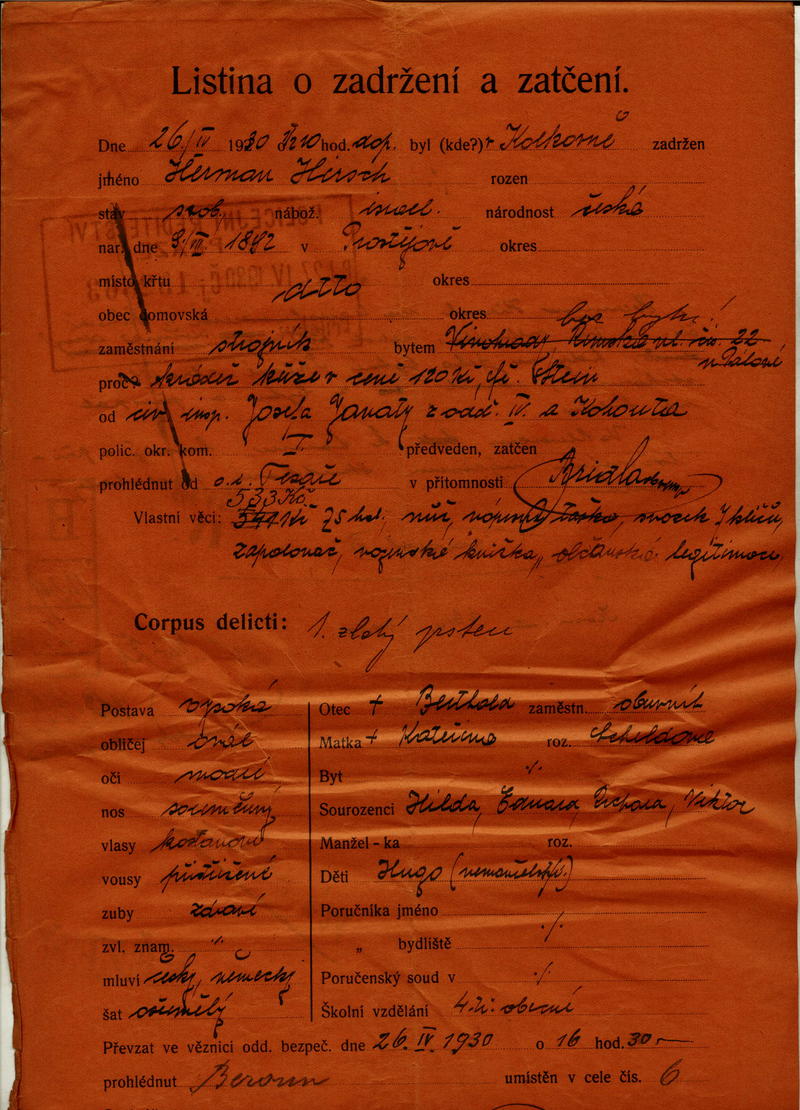 Listina o zadržení a zatčení.
Dne 26/IV 1930 hod. dop. byl (kde?) v Kolkovně zadržen
jméno Herman Hirsch rozen
stav svob. nábož. israel. národnost česká
nar. dne 9/VII 1892 v Prostějově okres
místo křtu okres
dtto
obec domovská okres bez bytu!
zaměstnání strojník bytem Vinohrady Římská ul. čís. 22
proč krádež kůže v ceně 120 Kč, fě. Stein
od civ. insp. Josefa Janaty z odd. IV. a Kohouta
polic. okr. kom. I. předveden, zatčen
prohlédnut od v přítomnosti
533 Kč
Vlastní věci: 541 Kč 75 hal, nůž, taška, svazek 7 klíčů,
zapalovač, vojenská knížka, občanská legitimace
Corpus delicti: 1 zlatý prsten
Postava vysoká Otec + Berthold zaměstn. obuvník
obličej ovál Matka + Kateřina roz.
oči modré Byt ./.
nos souměrný Sourozenci Hilda, Eduard, Richard, Viktor
vlasy kaštanové Manžel - ka roz.
vousy přistřižené Děti Hugo
zuby zdravé Poručníka jméno
zvl. znam. ./. „ bydliště ./.
mluví česky, německy Poručenský soud v ./.
šat ošumělý Školní vzdělání 4 tř. obecné
Převzat ve věznici odd. bezpeč. dne 26. IV. 1930 o 16 hod. 30
prohlédnut Beroun umístěn v cele čís. 6